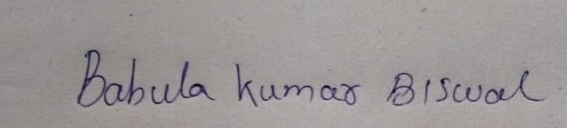 Babula kumar Biswal